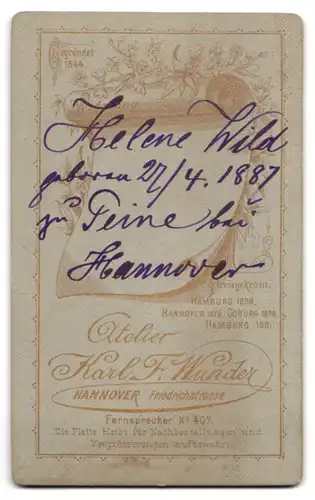 Gegründet
1844.
Helene Wild
geboren 27/4. 1887
zu Peine bei
Hannover
Preisgekrönt.
HAMBURG 1868,
HANNOVER 1878, COBURG 1878,
HAMBURG 1881
Atelier
Karl F. Wunder
HANNOVER Friedrichstrasse
Fernsprecher No 407.
Die Platte bleibt für Nachbestellungen und
Vergrösserungen aufbewahrt.